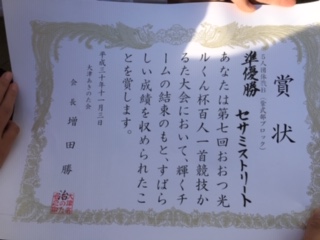 賞状
準優勝
セサミストリート
あなたは第七回おおつ光
ルくん杯百人一首競技か
るた大会において、輝くチ
ームの結束のもと、すばら
しい成績を収められたこ
とを賞します。
平成三十年十一月三日
大津あきのた会
会長 増田勝治